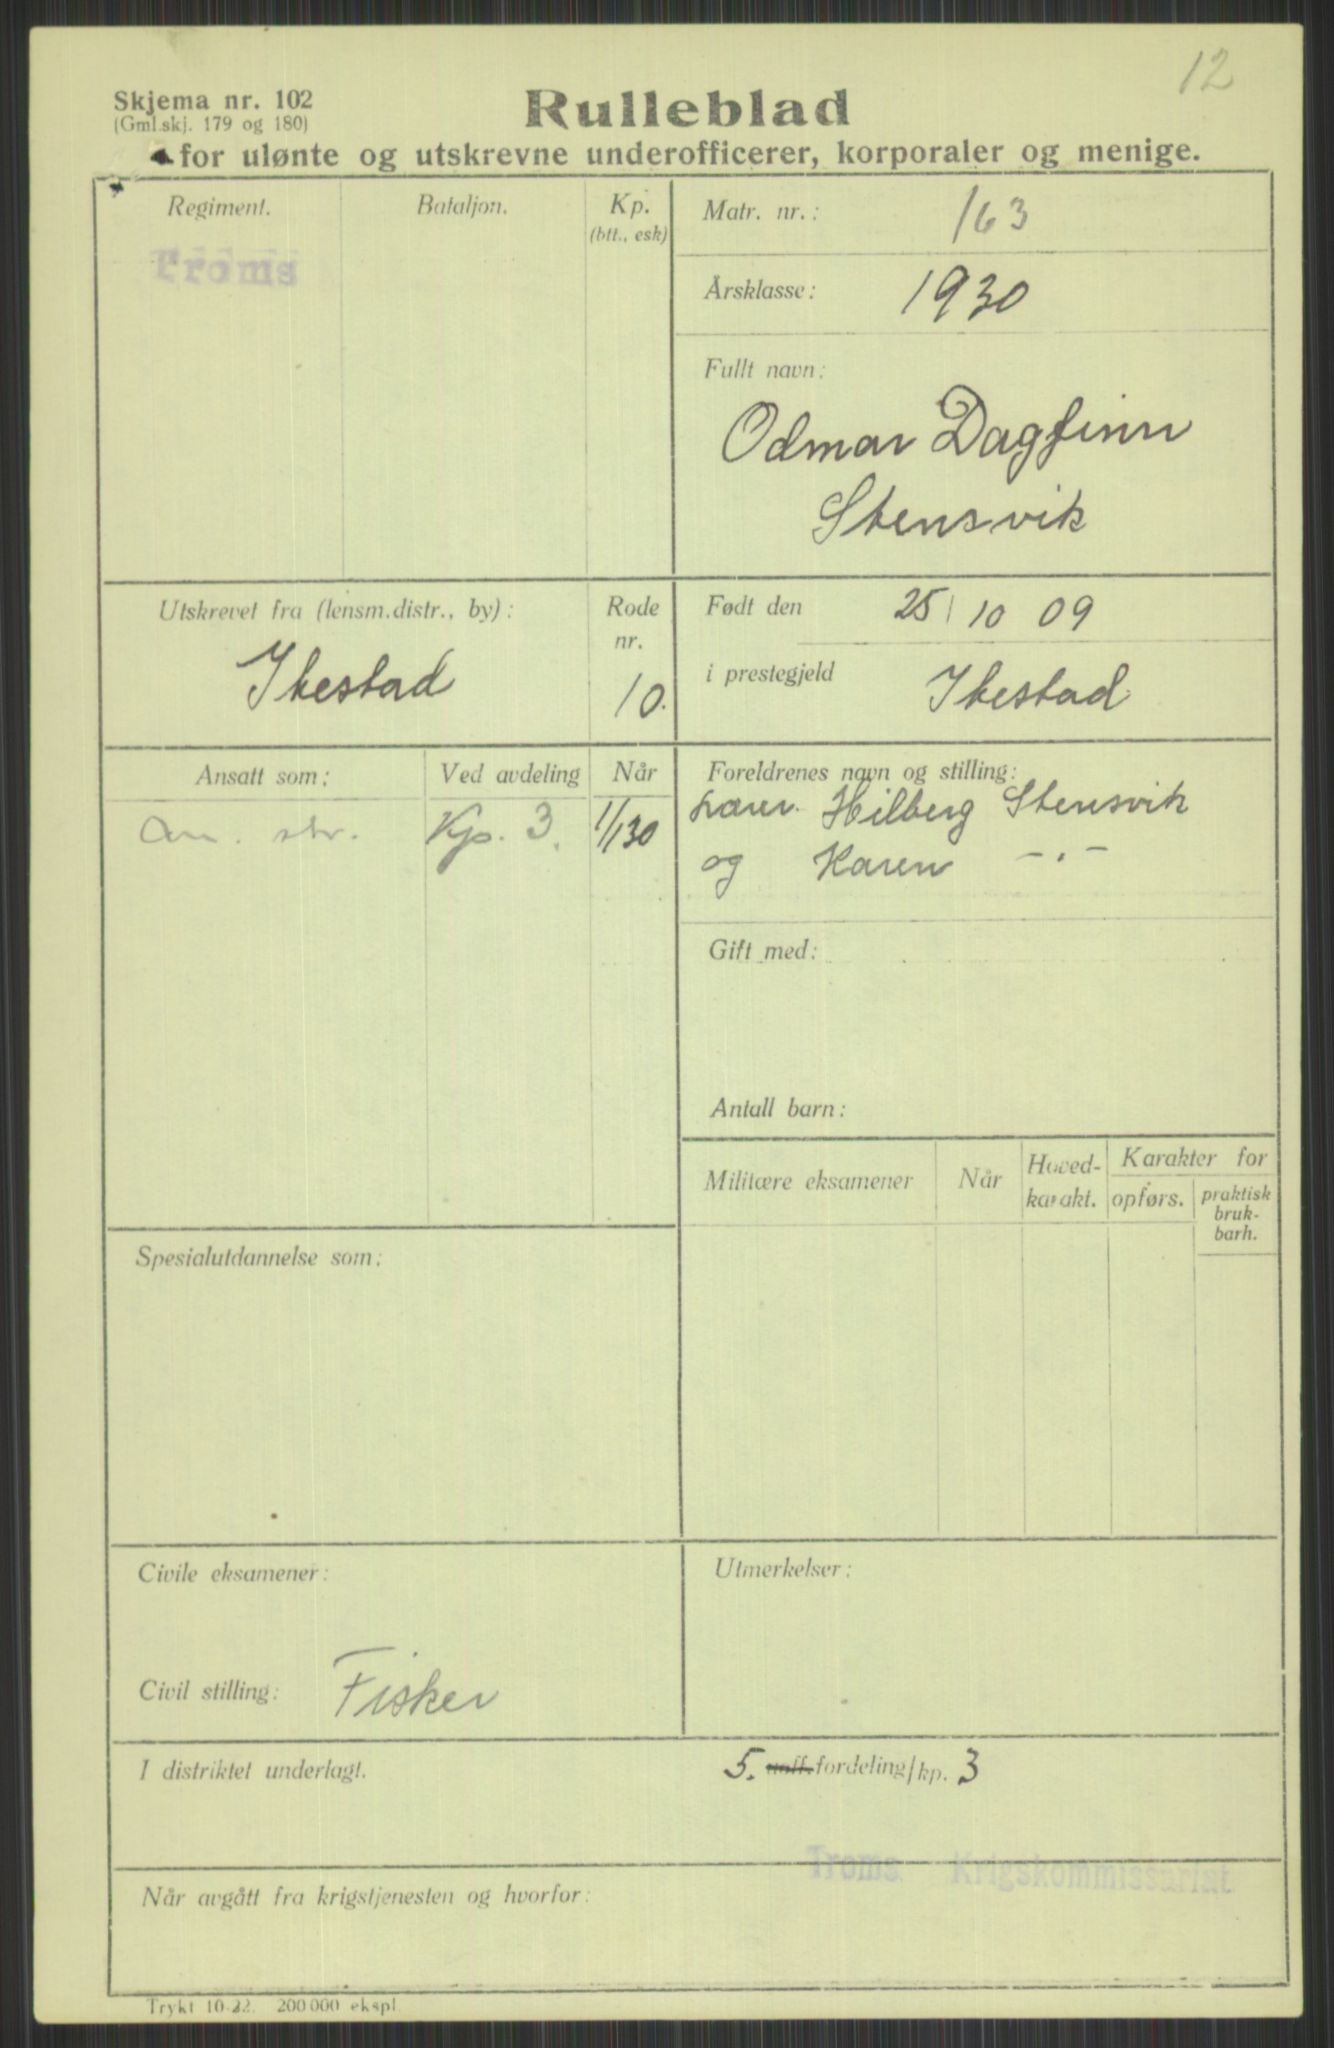 12
Skjema nr. 102
(Gml.skj. 179 og 180)
Rulleblad
for ulønte og utskrevne underofficerer, korporaler og menige.
Regiment.
Bataljon.
Kp.
(btt., esk)
Troms
Matr. nr.: 163
Årsklasse: 1930
Fullt navn:
Odmar Dagfinn
Stensvik
Utskrevet fra (lensm.distr., by):
Ibestad
Rode
nr.
10.
Født den 25/10 09
i prestegjeld Ibestad
Ansatt som:
Ved avdeling
Når
an. str. Kp. 3. 1/1 30
Foreldrenes navn og stilling:
Lærer Hilberg Stensvik
og Karen -.-
Gift med:
Antall barn:
Militære eksamener
Når
Hoved-
karakt.
Karakter for
opførs.
praktisk
bruk-
barh.
Spesialutdannelse som:
Civile eksamener:
Civil stilling: Fisker
Utmerkelser:
I distriktet underlagt.
5. fordeling/kp. 3
Troms Krigskommissariat
Når avgått fra krigstjenesten og hvorfor:
Trykt 10-22. 200 000 ekspl.